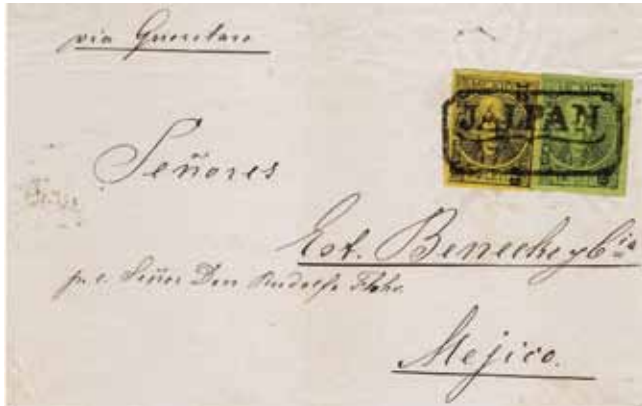 via Queretaro
JALPAN
Señores
Est. Benecke y Cia
p. c. Señor Don Rudolfo
Mejico.